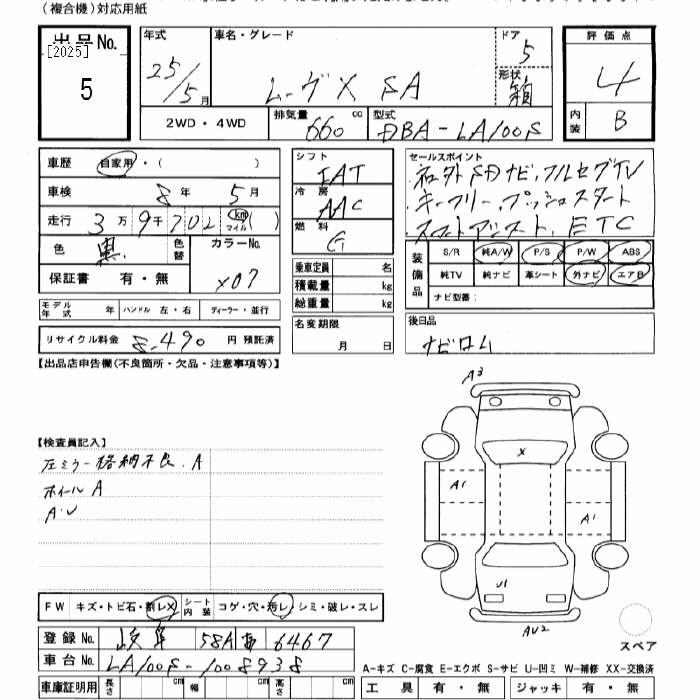 (複合機)対応用紙
出品No.
[2025]
5
年式
25/5月
車名・グレード
ムーヴX SA
ドア
5
形状
箱
評価点
4
内装
B
2WD・4WD
排気量
660 cc
型式
DBA-LA100S
車歴
自家用・( )
車検
8年 5月
走行
3万9千702 km マイル ( )
色
黒
色替
カラーNo.
X07
保証書 有・無
モデル年式 年 ハンドル 左・右 ディーラー・並行
リサイクル料金 8,490 円 預託済
シフト
IAT
冷房
AAC
燃料
G
乗車定員 名
積載量 kg
総重量 kg
名変期限
月 日
セールスポイント
ネロ外SDナビ、フルセグTV
キーフリー、プッシュスタート
スマートアシスト、ETC
装備品
S/R 純A/W P/S P/W ABS
純TV 純ナビ 革シート 外ナビ エアB
ナビ型番:
後日品
ナビロム
【出品店申告欄(不良箇所・欠品・注意事項等)】
【検査員記入】
左ミラー格納不良、A
ホイールA
A・U
A3
X
A1
A1
U1
AU2
スペア
FW キズ・トビ石・割レX
シート内装 コゲ・穴・汚レ・シミ・破レ・スレ
登録No. 岐阜 58A あ 6467
車台No. LA100S-1008938
車庫証明用 長さ cm 幅 cm 高さ cm
A-キズ C-腐食 E-エクボ S-サビ U-凹ミ W-補修 XX-交換済
工具 有・無 ジャッキ 有・無